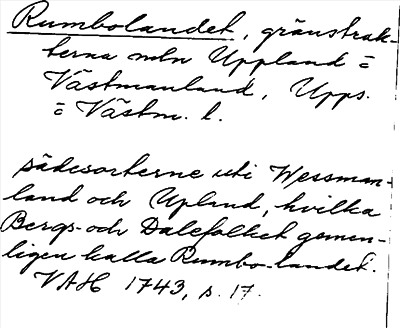 Rumbolandet, gränstrak-
terna mln Uppland =
Västmanland, Upps.
= Västm. l.
sädesorterne uti Wessman-
land och Upland, hvilka
Bergs- och Dalefolket gemen-
ligen kalla Rumbo-landet.
VAH 1743, s. 17.